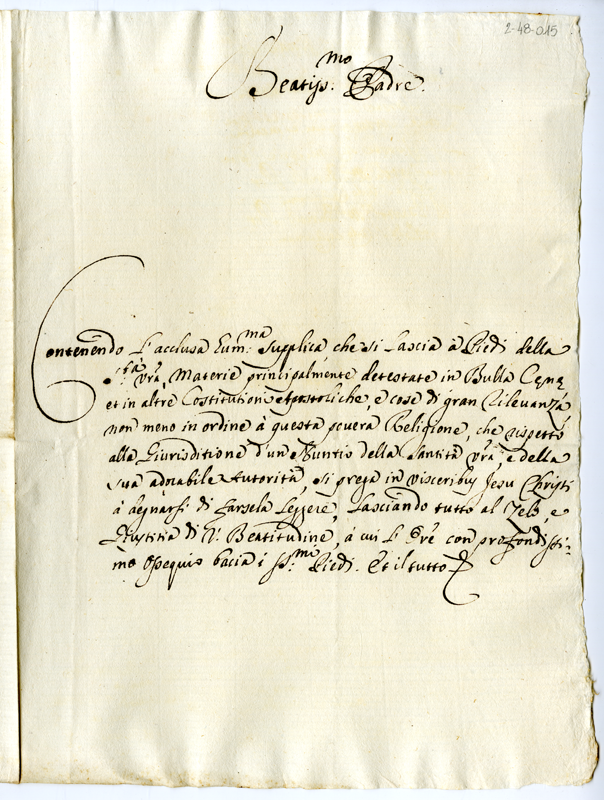 2-48-015
Beatiss:mo Padre.
Contenendo l'acclusa hum:ma supplica, che si lascia à Piedi della
S.tà Vrã, Materie principalmente detestate in Bulla Cęnę
et in altre Costitutioni Apostoliche, e cose di gran rilevanza
non meno in ordine à questa povera Religione, che rispetto
alla Giurisditione d'un Nuntio della Santità Vrã, e della
sua adorabile Autorità, si prega in visceribus Jesu Christi
à degnarsi di farsela leggere, lasciando tutto al Zelo, e
Giustitia di V: Beatitudine, à cui l' Ore con profondissi-
mo Ossequio bacia i SS:mi Piedi. Et il tutto